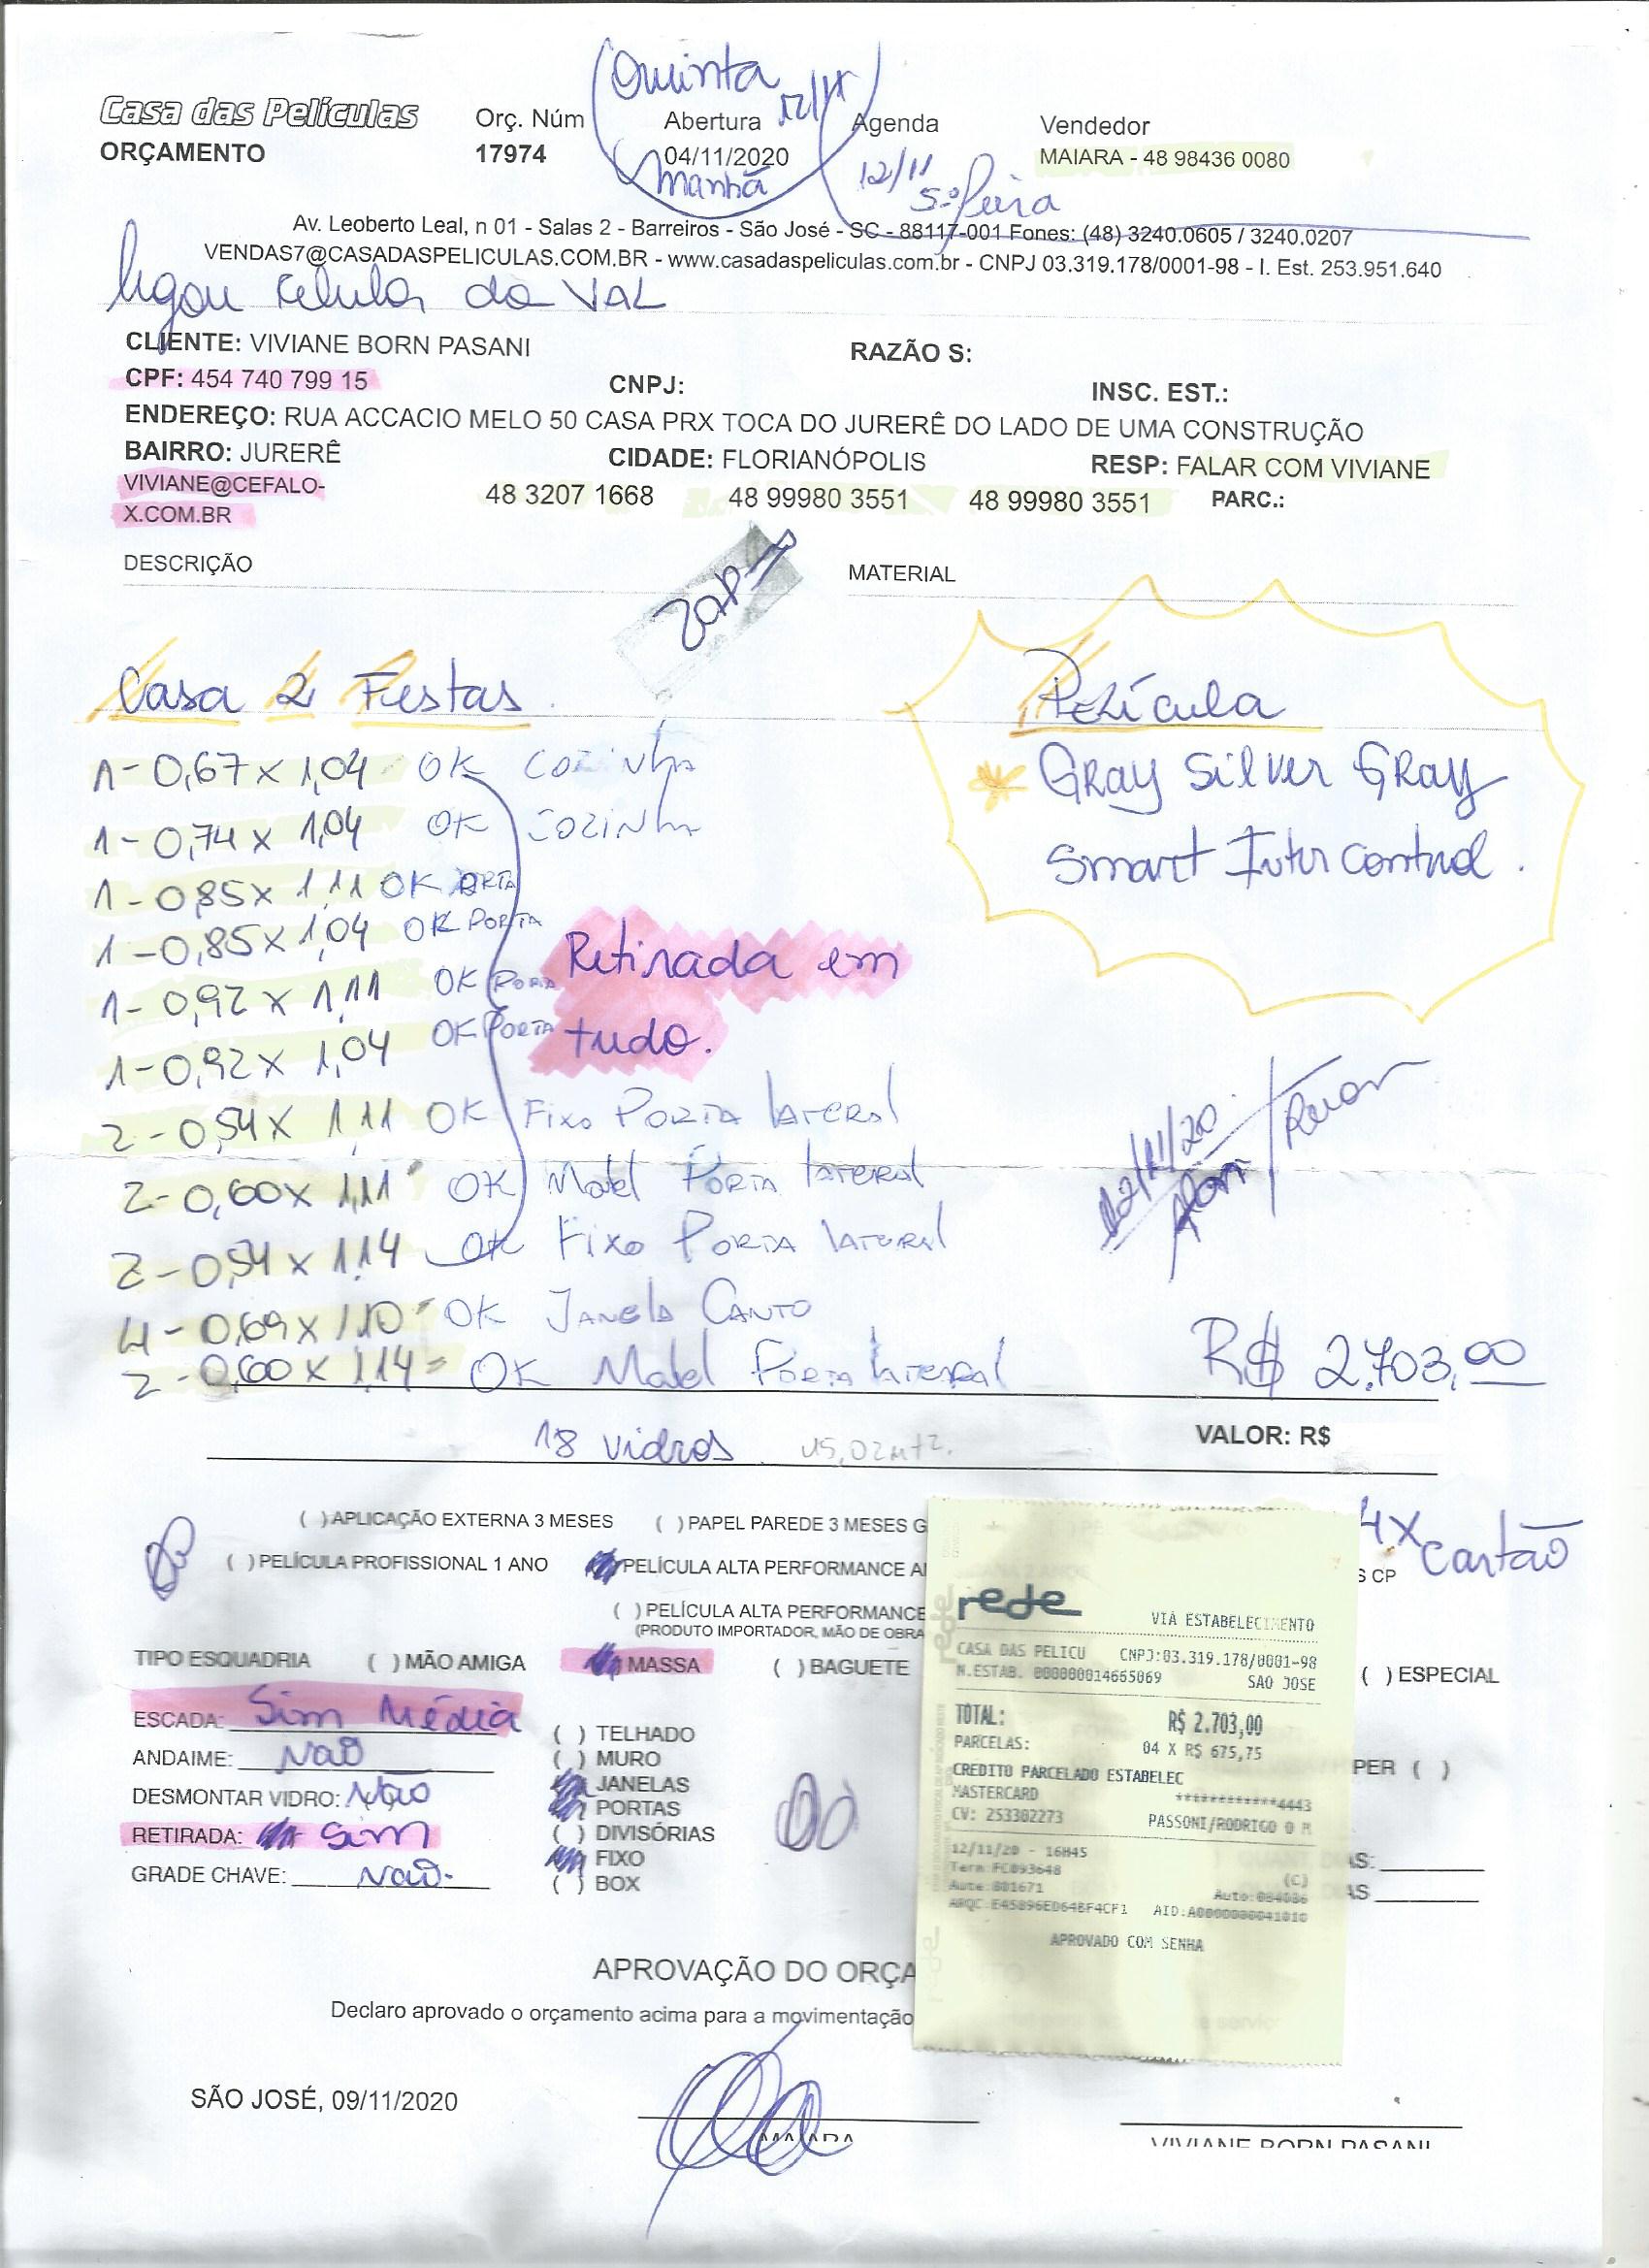 Quinta 12/11
Casa das Películas Orç. Núm Abertura Agenda Vendedor
ORÇAMENTO 17974 04/11/2020 MAIARA - 48 98436 0080
manhã 12/11
5ª feira
Av. Leoberto Leal, n 01 - Salas 2 - Barreiros - São José - SC - 88117-001 Fones: (48) 3240.0605 / 3240.0207
VENDAS7@CASADASPELICULAS.COM.BR - www.casadaspeliculas.com.br - CNPJ 03.319.178/0001-98 - I. Est. 253.951.640
ligou celular da VAL
CLIENTE: VIVIANE BORN PASANI RAZÃO S:
CPF: 454 740 799 15 CNPJ: INSC. EST.:
ENDEREÇO: RUA ACCACIO MELO 50 CASA PRX TOCA DO JURERÊ DO LADO DE UMA CONSTRUÇÃO
BAIRRO: JURERÊ CIDADE: FLORIANÓPOLIS RESP: FALAR COM VIVIANE
VIVIANE@CEFALO-
X.COM.BR 48 3207 1668 48 99980 3551 48 99980 3551 PARC.:
DESCRIÇÃO MATERIAL
Casa 2 Festas Película
1-0,67 x 1,04 OK Cozinha Gray Silver Gray
1-0,74 x 1,04 OK Cozinha Smart Inter Control.
1-0,85 x 1,11 OK PORTA
1-0,85 x 1,04 OK PORTA
Retirada em
1-0,92 x 1,11 OK PORTA
1-0,92 x 1,04 OK PORTA
tudo.
2-0,54 x 1,11 OK Fixo PORTA lateral
12/11/20
2-0,60 x 1,11 OK Mobel PORTA lateral
2-0,54 x 1,14 OK Fixo PORTA lateral
4-0,69 x 1,10 OK JANELA CANTO
2-0,60 x 1,14 OK Mobel PORTA lateral R$ 2.703,00
18 vidros 15,02mt2. VALOR: R$
( )APLICAÇÃO EXTERNA 3 MESES ( ) PAPEL PAREDE 3 MESES G 4x cartão
( ) PELÍCULA PROFISSIONAL 1 ANO PELÍCULA ALTA PERFORMANCE S CP
( ) PELÍCULA ALTA PERFORMANCE
(PRODUTO IMPORTADOR, MÃO DE OBRA
TIPO ESQUADRIA ( ) MÃO AMIGA MASSA ( ) BAGUETE ( ) ESPECIAL
ESCADA: Sim Média
( ) TELHADO
ANDAIME: Não
( ) MURO
PER ( )
DESMONTAR VIDRO: Não
JANELAS
PORTAS
RETIRADA: Sim
( ) DIVISÓRIAS
FIXO
GRADE CHAVE: Não
( ) BOX
AS:
AS
rede
VIA ESTABELECIMENTO
CASA DAS PELICU CNPJ:03.319.178/0001-98
N.ESTAB. 000000014665069 SAO JOSE
TOTAL: R$ 2.703,00
PARCELAS: 04 X R$ 675,75
CREDITO PARCELADO ESTABELEC
MASTERCARD ************4443
CV: 253302273 PASSONI/RODRIGO O M
12/11/20 - 16H45
Term:FC093648 (C)
Aute:801671 Auto:084086
ARQC:E45896ED64BF4CF1 AID:A0000000041010
APROVADO COM SENHA
APROVAÇÃO DO ORÇA
Declaro aprovado o orçamento acima para a movimentação
SÃO JOSÉ, 09/11/2020
MAIARA VIVIANE BORN PASANI